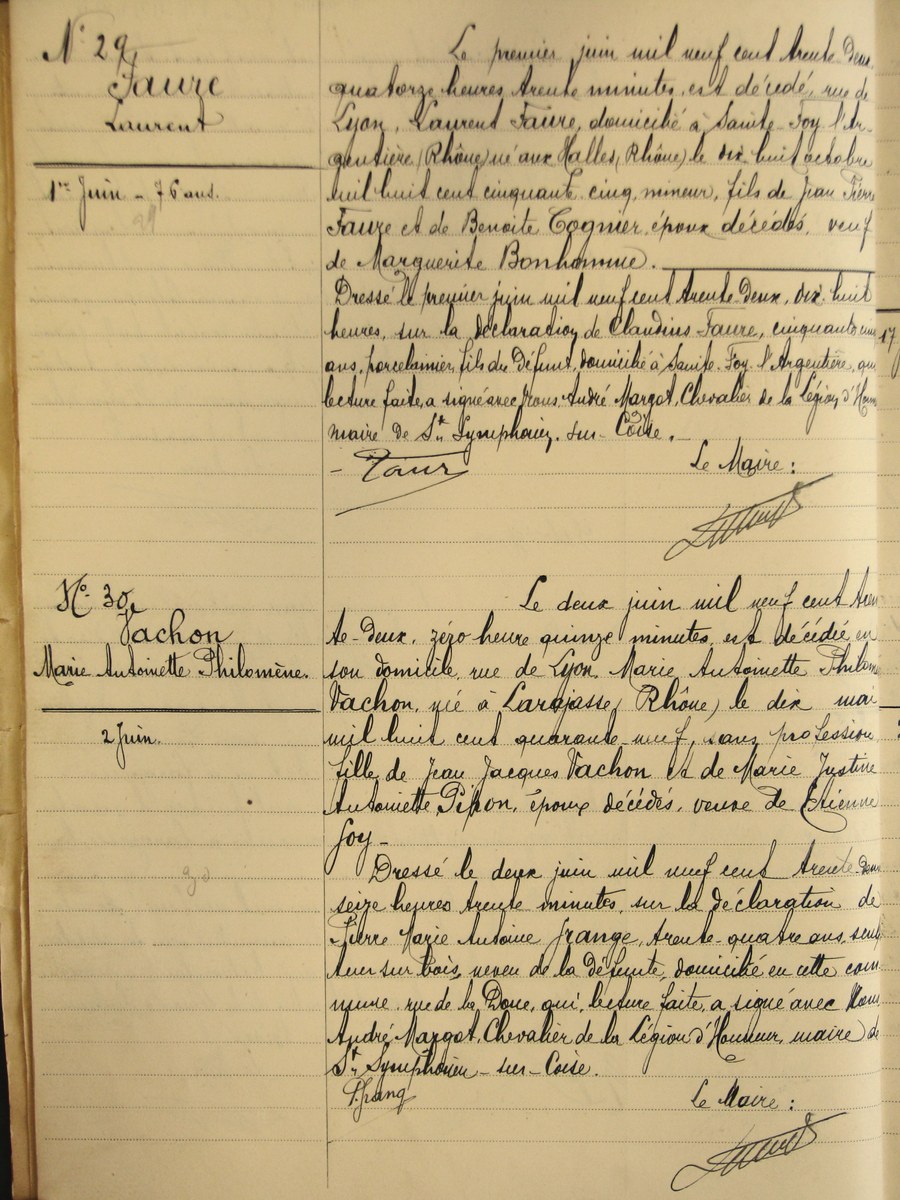 N° 29
Faure
Laurent
1er Juin - 76 ans.
Le premier juin mil neuf cent trente deux
quatorze heures trente minutes, est décédé, rue de
Lyon, Laurent Faure, domicilié à Sainte-Foy l'Ar-
gentière (Rhône) né aux Halles (Rhône) le dix huit octobre
mil huit cent cinquante cinq, mineur, fils de Jean Pierre
Faure et de Benoite Cognier, époux décédés, veuf
de Marguerite Bonhomme.
Dressé le premier juin mil neuf cent trente deux, dix-huit
heures, sur la déclaration de Claudius Faure, cinquante une
ans, porcelainier, fils du défunt, domicilié à Sainte-Foy l'Argentière, qui
lecture faite, a signé avec Nous, André Margot, Chevalier de la Légion d'Hon
maire de St Symphorien-sur-Coise.
Faure
Le Maire :
17
N° 30
Vachon
Marie Antoinette Philomène.
2 Juin.
Le deux juin mil neuf cent tren
te-deux, zéro heure quinze minutes, est décédée en
son domicile, rue de Lyon, Marie Antoinette Philom
Vachon, née à Larajasse (Rhône) le dix mai
mil huit cent quarante-neuf, sans profession
fille de Jean Jacques Vachon et de Marie Justine
Antoinette Pipon, époux décédés, veuve de Etienne
Joy-
Dressé le deux juin mil neuf cent trente-deux
seize heures trente minutes, sur la déclaration de
Pierre Marie Antoine Grange, trente-quatre ans, sculp
teur sur bois, neveu de la défunte, domicilié en cette com
mune rue de la Doue, qui, lecture faite, a signé avec Nous
André Margot, Chevalier de la Légion d'Honneur, maire de
St Symphorien-sur-Coise.
Le Maire :